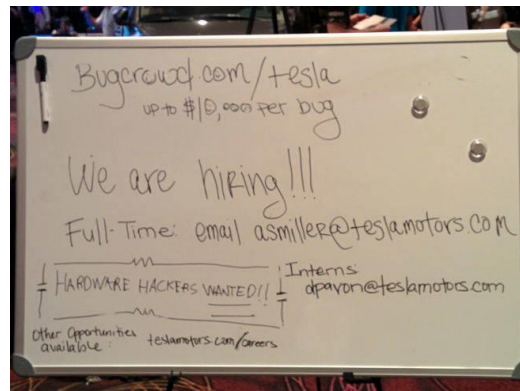 Bugcrowd.com/tesla
up to $10,000 per bug
We are hiring!!!
Full-Time: email asmiller@teslamotors.com
HARDWARE HACKERS WANTED!!
Interns:
dpavon@teslamotors.com
Other Opportunities
available: teslamotors.com/careers